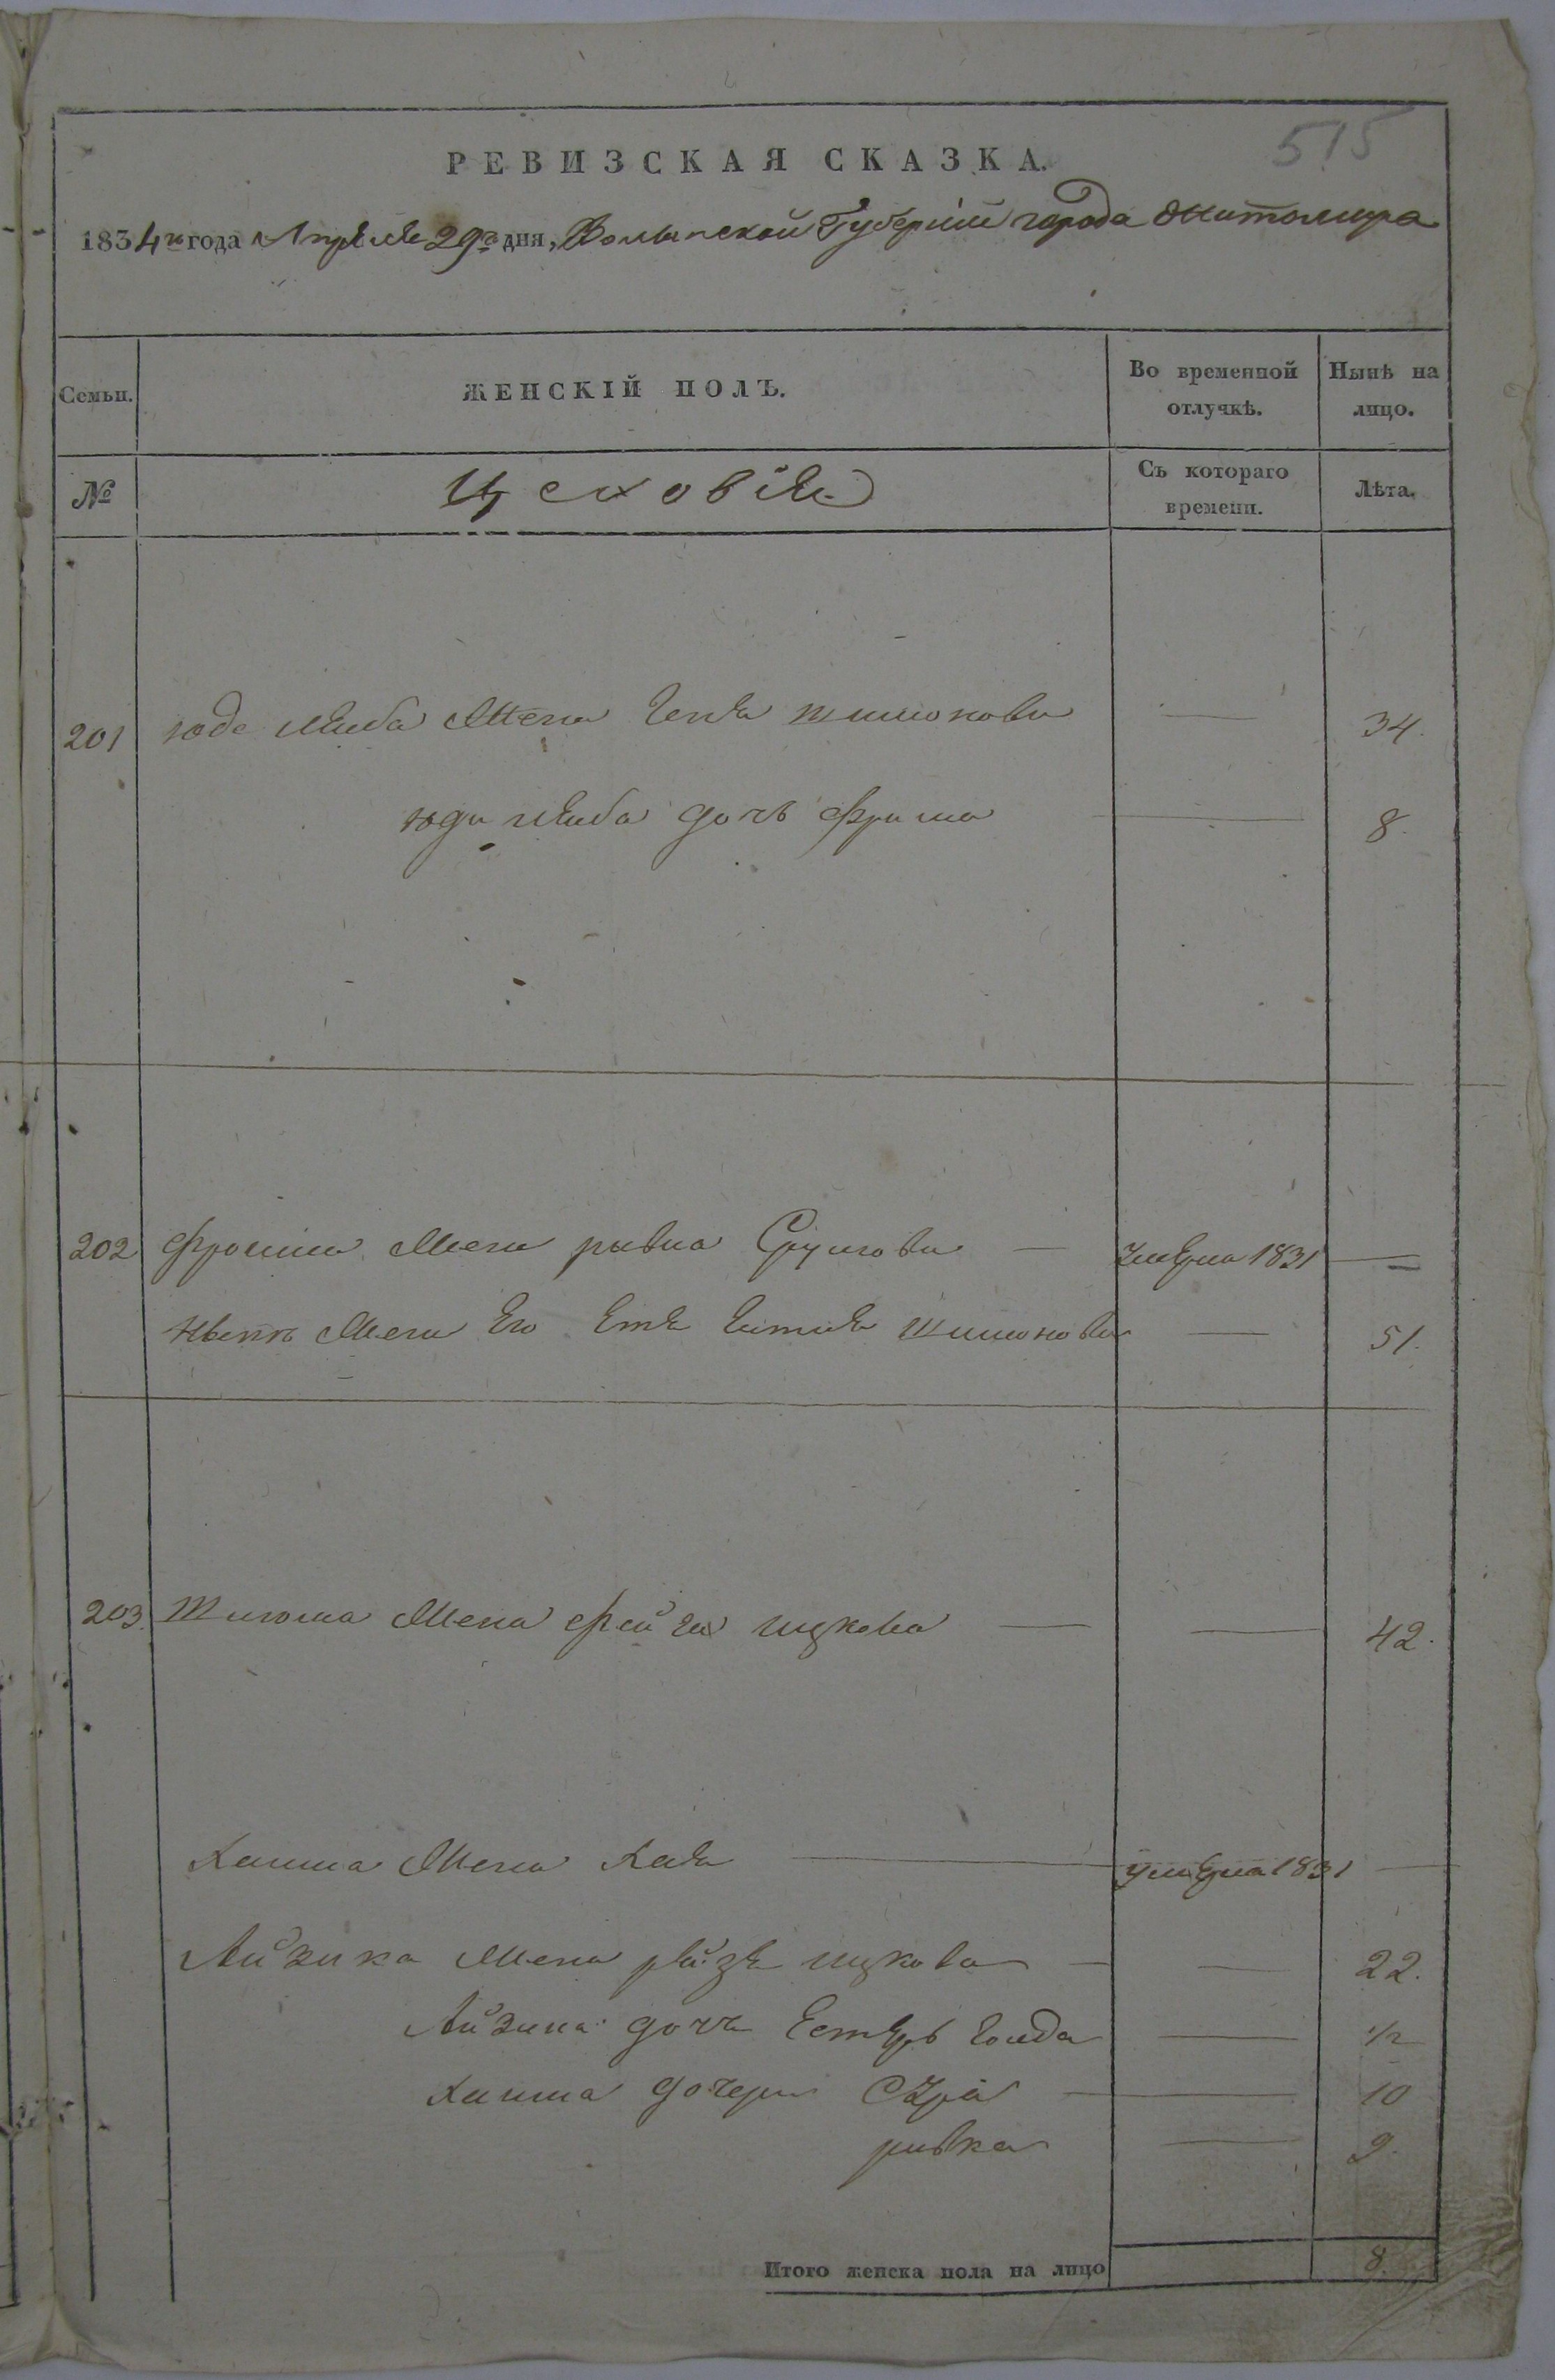 515
РЕВИЗСКАЯ СКАЗКА.
1834го года Апреля 29го дня, Волынской Губернiи города Житомира
Семьи. ЖЕНСКІЙ ПОЛЪ. Во временной отлучкѣ. Нынѣ на лицо.
№ Цеховiе Съ котораго времени. Лѣта.
201 юде лейба жена Геня шимонова — 34.
юди лейба дочь фрима — 8.
202 фроима жена ривка Сруль­ова — умерла 1831 —
жена Его Етя шимонова — 51.
203. жена фейга ицкова — — 42.
Хаима жена Хая — умерла 1831 —
Айзика жена рейзя ицкова — — 22.
Айзика дочь Естерь голда — 1/2
Хаима дочери Сура — 10
ривка — 9.
Итого женска пола на лицо 8.